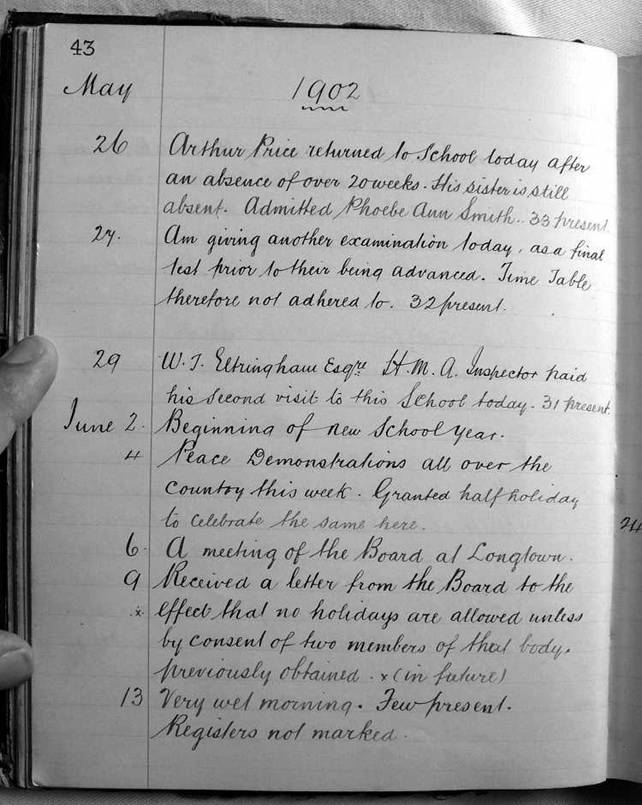 43
May 1902
26 Arthur Price returned to School today after
an absence of over 20 weeks. His sister is still
absent. Admitted Phoebe Ann Smith. 33 present.
27. Am giving another examination today, as a final
test prior to their being advanced. Time Table
therefore not adhered to. 32 present.
29 W. J. Eltringham Esqre H. M. A. Inspector paid
his second visit to this School today. 31 present.
June 2. Beginning of new School Year.
4 Peace Demonstrations all over the
country this week. Granted half holiday
to celebrate the same here.
24
6. A meeting of the Board at Longtown.
9 Received a letter from the Board to the
x effect that no holidays are allowed unless
by consent of two members of that body.
previously obtained. x (in future)
13 Very wet morning. Few present.
Registers not marked.